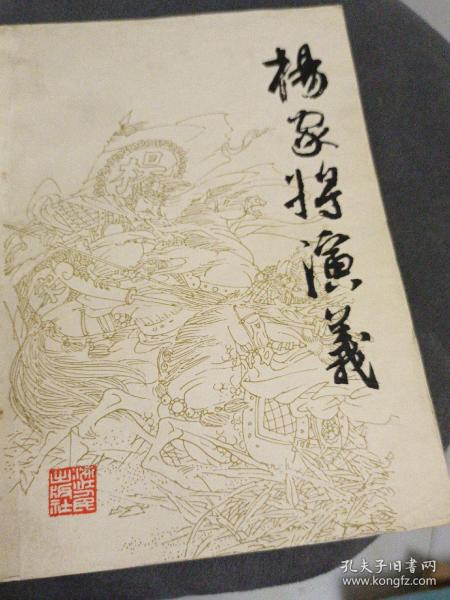 楊家将演義
浙江人民
出版社
孔夫子旧书网
www.kongfz.com